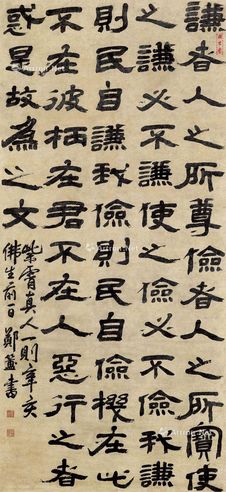 謙者人之所尊儉者人之所寶使
之謙必不謙使之儉必不儉我謙
則民自謙我儉則民自儉機在此
不在彼柄在君不在人惡行之者
惑是故為之文
紫霄真人則辛亥
佛生前一日鄭簠書